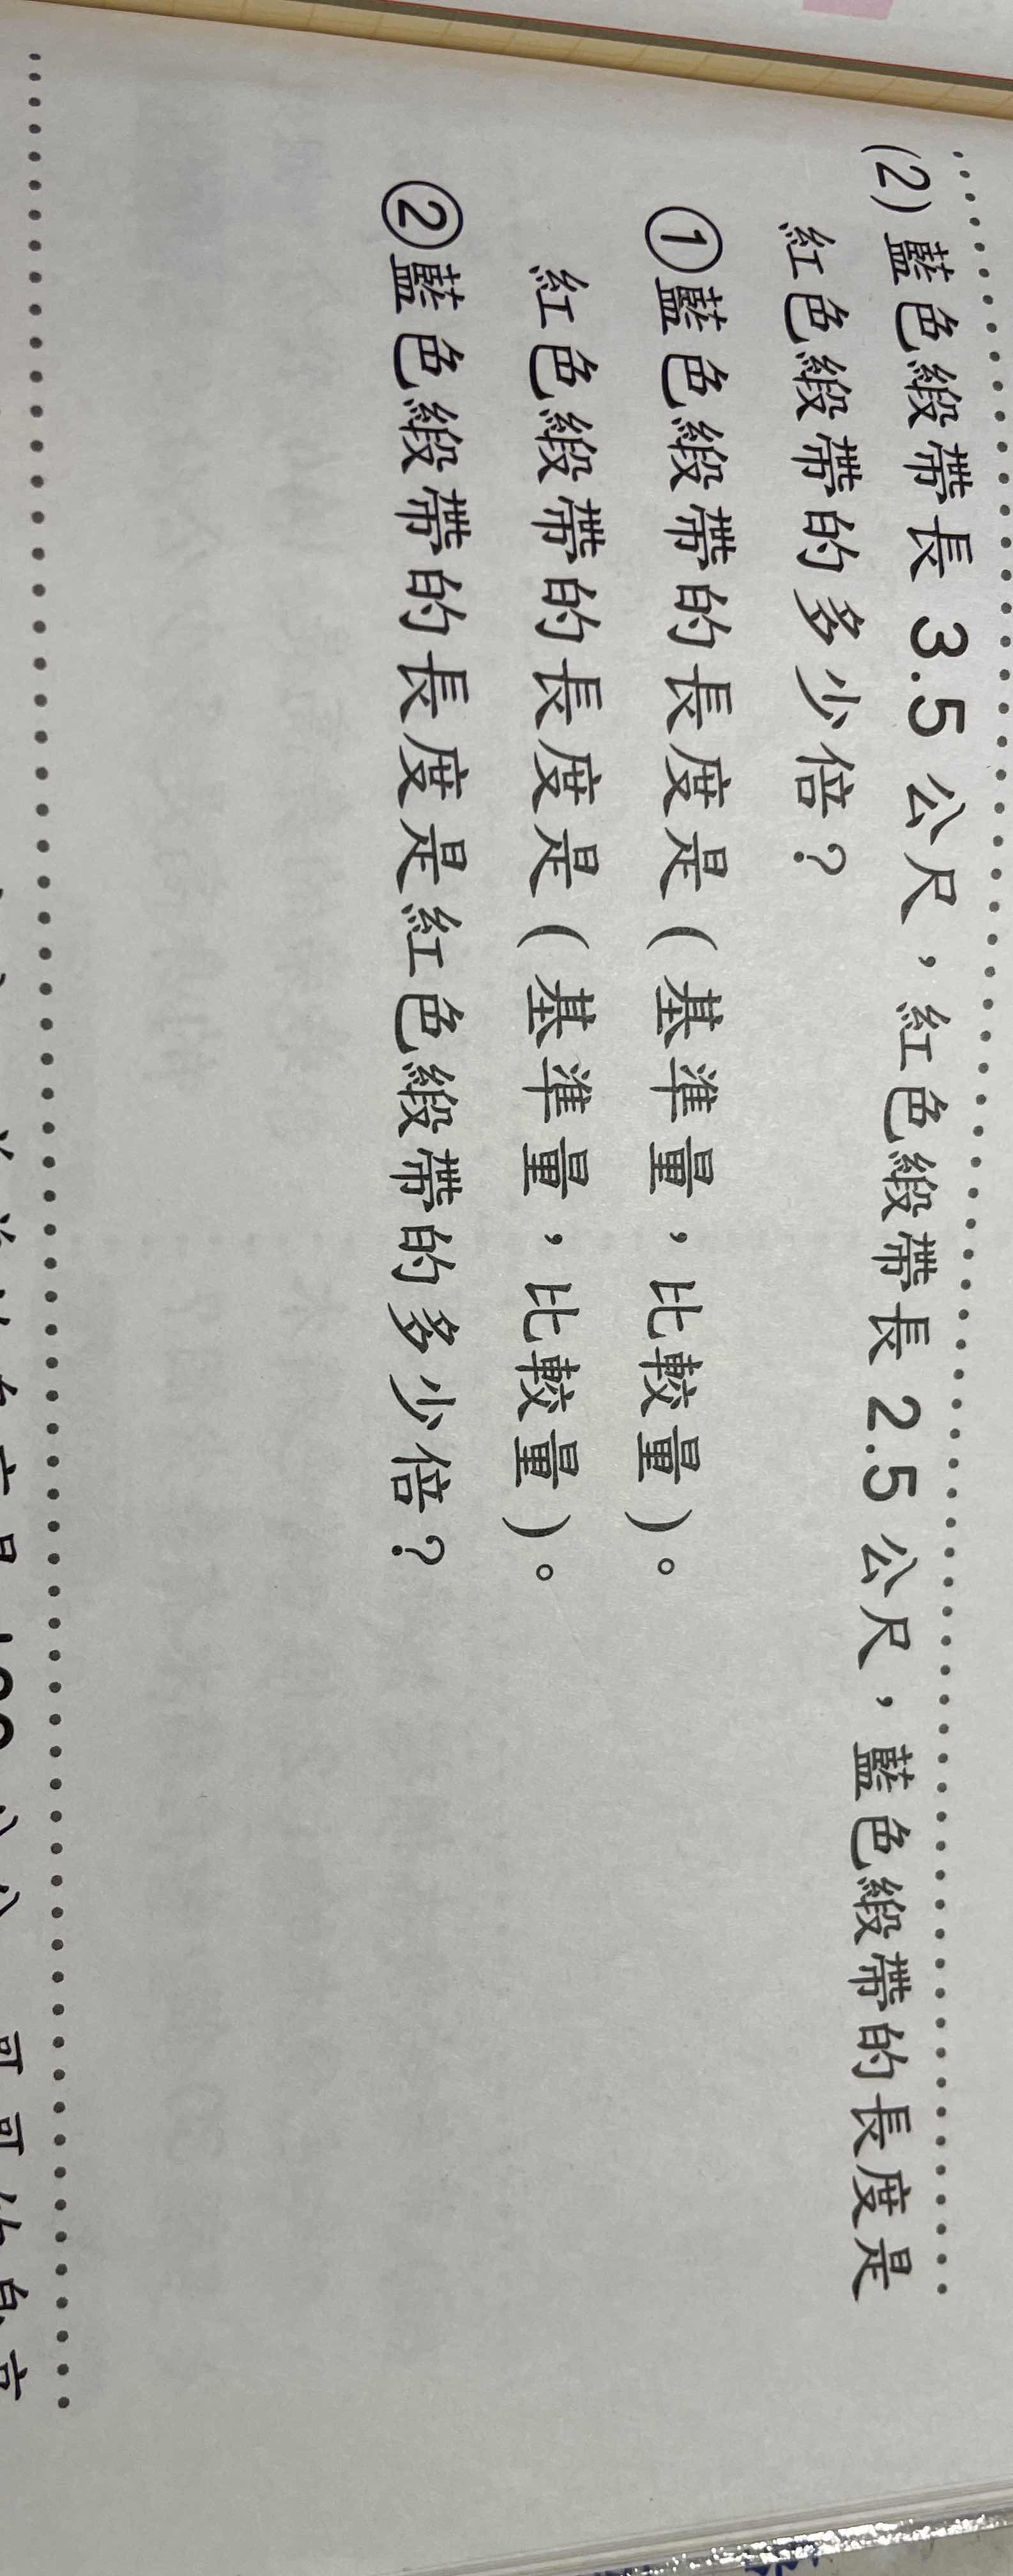 (2)藍色緞帶長 3.5 公尺，紅色緞帶長 2.5 公尺，藍色緞帶的長度是
紅色緞帶的多少倍？
①藍色緞帶的長度是（基準量，比較量）。
紅色緞帶的長度是（基準量，比較量）。
②藍色緞帶的長度是紅色緞帶的多少倍？